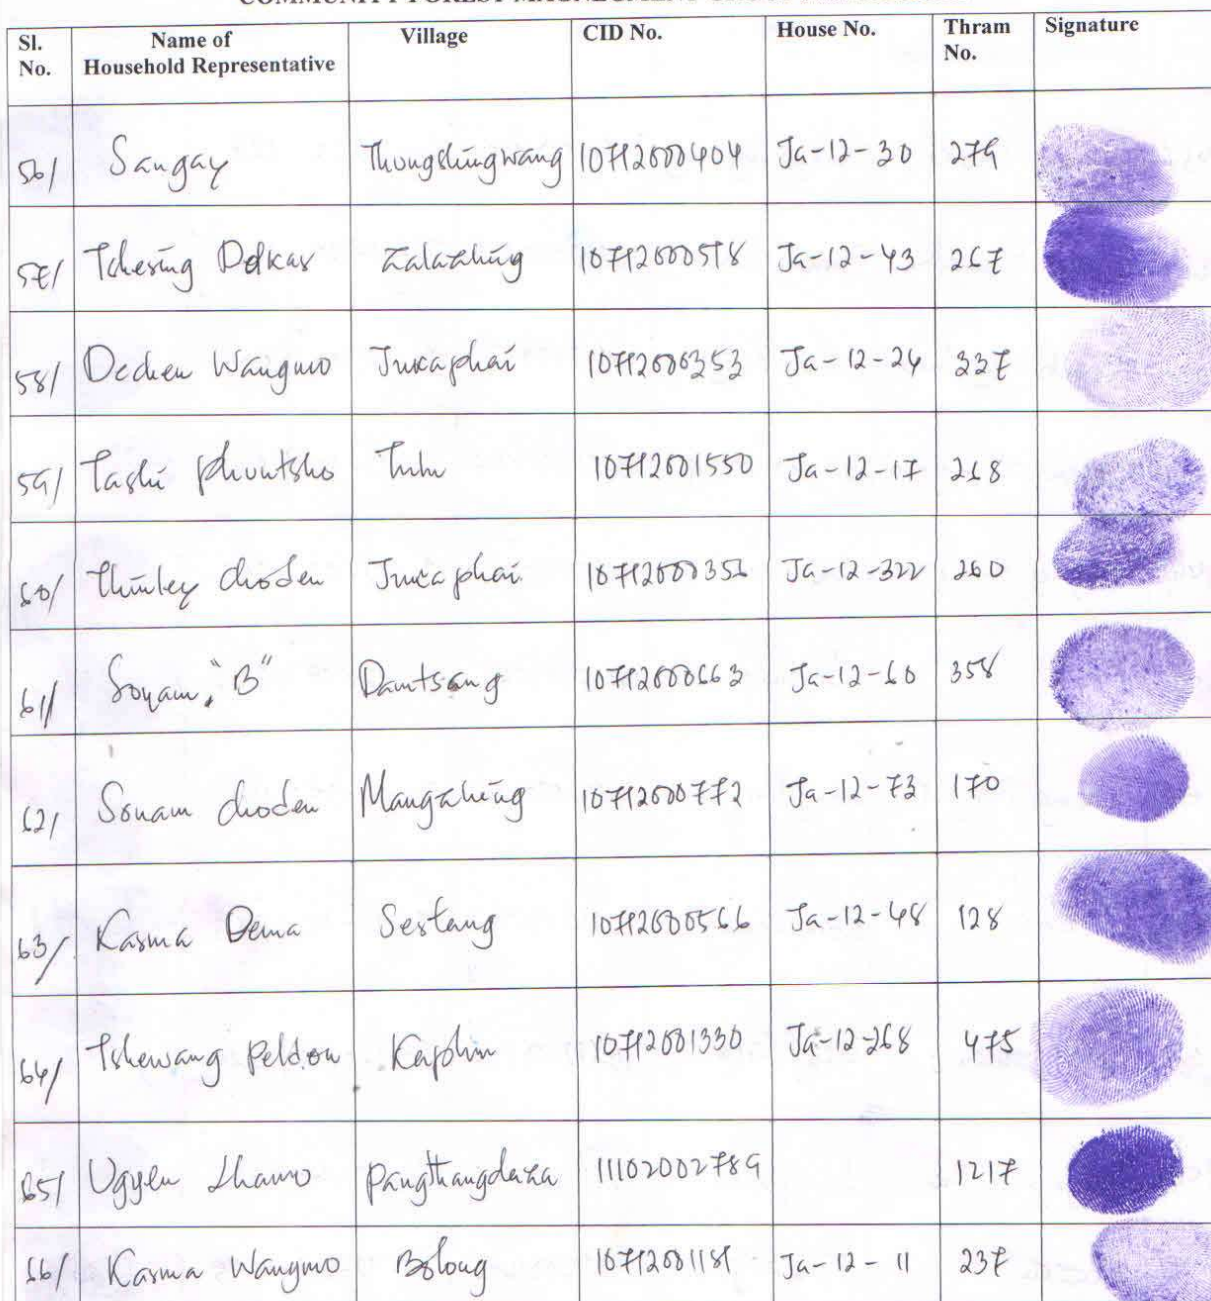 Sl. No. Name of Household Representative Village CID No. House No. Thram No. Signature
56/ Sangay Thongshingwang 10712000404 Ja-12-30 279
57/ Tshering Delkar Zalazhing 10712000578 Ja-12-43 267
58/ Dechen Wangmo Jucaphai 10712000353 Ja-12-24 337
59/ Tashi Phuntsho 10712001550 Ja-12-17 268
60/ Thinley Choden Jucaphai 10712000356 Ja-12-322 260
61/ Sonam "B" Damtsang 10712000663 Ja-12-60 358
62/ Sonam Choden Mangzhing 10712000772 Ja-12-73 170
63/ Karma Dema Sestang 10712000566 Ja-12-48 128
64/ Tshewang Peldon 10712001330 Ja-12-268 475
65/ Ugyen Lhamo Pangthangdaza 11102002789 1217
66/ Karma Wangmo Bolong 10712001181 Ja-12-11 237